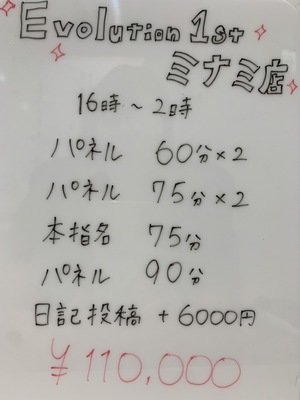 Evolution 1st
ミナミ店
16時～2時
パネル 60分×2
パネル 75分×2
本指名 75分
パネル 90分
日記投稿 +6000円
¥110,000